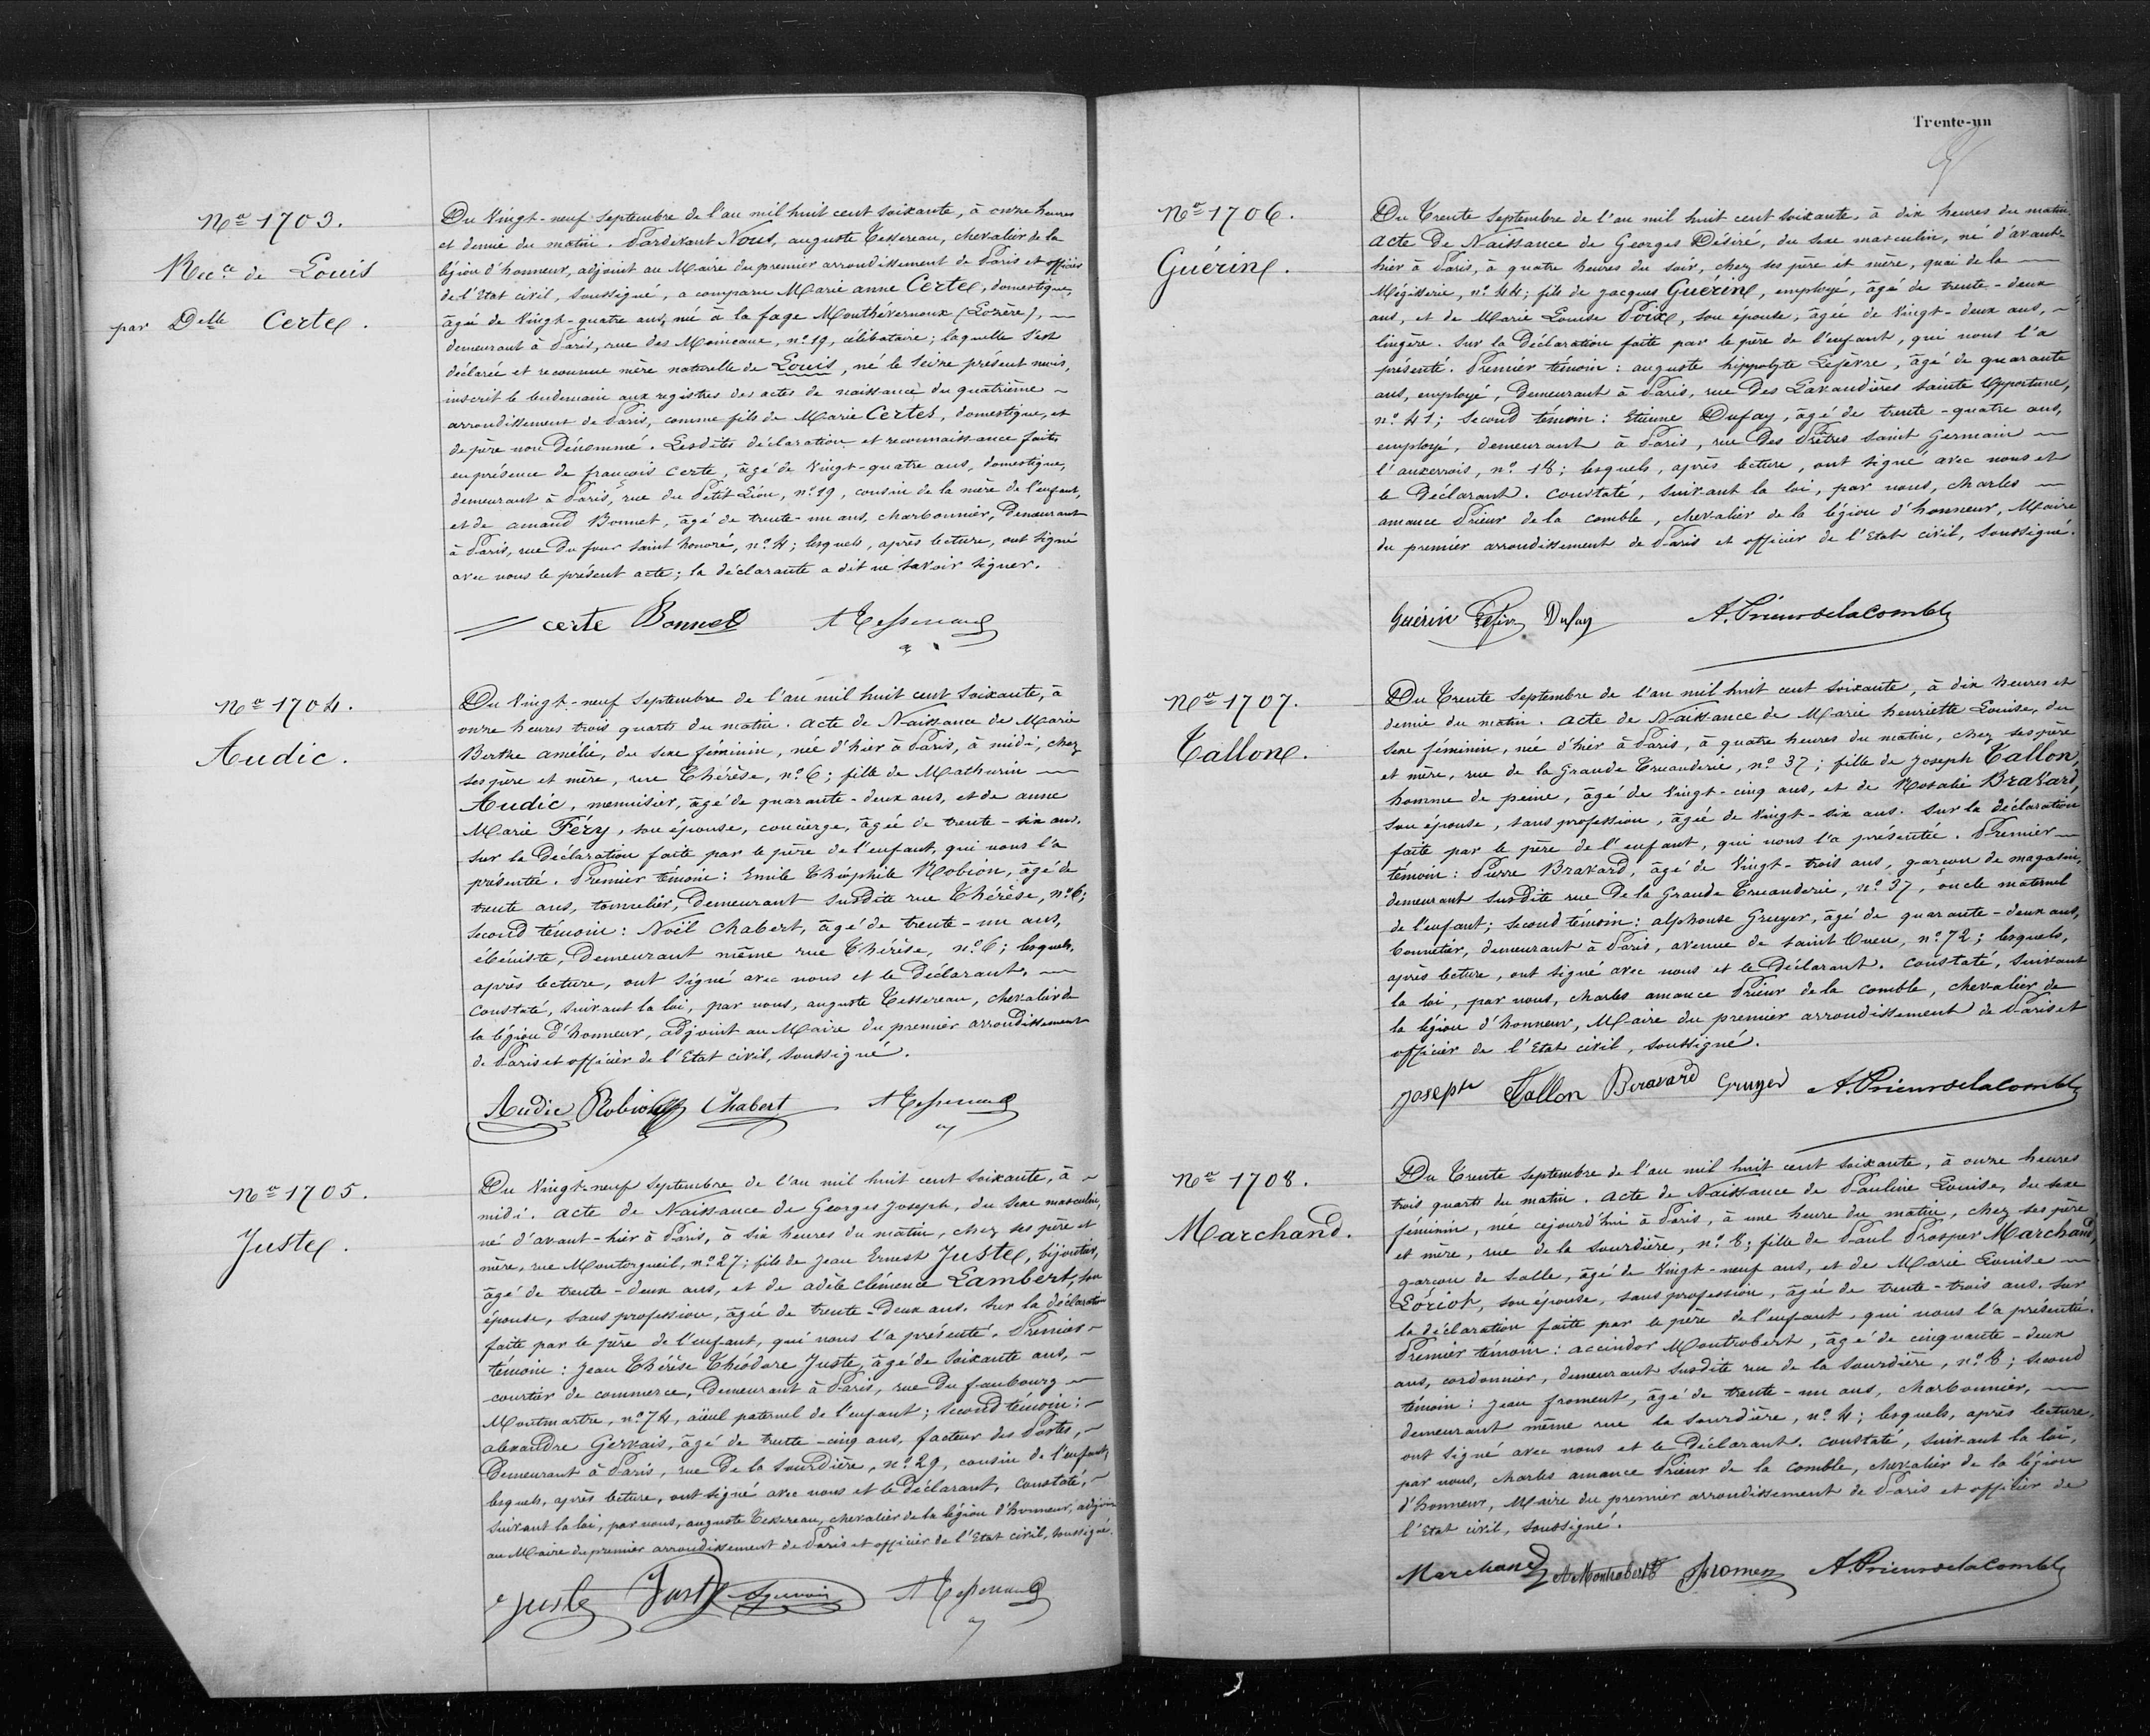 Nº 1703.
Recce de Louis
par Delle Certe.
Du Vingt-neuf Septembre de l'an mil huit cent soixante, à onze heures
et demie du matin. Pardevant Nous, auguste Tessereau, chevalier de la
légion d'honneur, adjoint au Maire du premier arrondissement de Paris et officier
de l'Etat civil, soussigné, a comparu Marie anne Certe, domestique,
âgée de Vingt-quatre ans, née à la fage Monthévernoux (Lozère),
demeurant à Paris, rue des Moineaux, nº 19, célibataire; laquelle s'est
déclarée et reconnue mère naturelle de Louis, né le seize présent mois,
inscrit le lendemain aux registres des actes de naissance du quatrième
arrondissement de Paris, comme fils de Marie Certes, domestique, et
de père non dénommé. Lesdites déclaration et reconnaissance faites
en présence de françois Certe, âgé de Vingt-quatre ans, domestique,
demeurant à Paris, rue du Petit Lion, nº 19, cousin de la mère de l'enfant,
et de amand Bonnet, âgé de trente-un ans, charbonnier, Demeurant
à Paris, rue du four saint honoré, nº 4; lesquels, après lecture, ont signé
avec nous le présent acte; la déclarante a dit ne savoir signer.
certe Bonnet ATessereau
Nº 1704.
Audic.
Du Vingt-neuf Septembre de l'an mil huit cent soixante, à
onze heures trois quarts du matin. acte de Naissance de Marie
Berthe amélie, du sexe féminin, née d'hier à Paris, à midi, chez
ses père et mère, rue Thérèse, nº 6; fille de Mathurin
Audic, menuisier, âgé de quarante-deux ans, et de anne
Marie Féry, son épouse, concierge, âgée de trente-six ans.
Sur la Déclaration faite par le père de l'enfant, qui nous l'a
présentée. Premier témoin: Emile Théophile Robion, âgé de
trente ans, tonnelier, Demeurant susdite rue Thérèse, nº 6;
second témoin: Noël Chabert, âgé de trente-un ans,
ébéniste, Demeurant même rue Thérèse, nº 6; lesquels,
après lecture, ont signé avec nous et le Déclarant.
Constaté, suivant la loi, par nous, auguste Tessereau, chevalier de
la légion d'honneur, adjoint au Maire du premier arrondissement
de Paris et officier de l'Etat civil, soussigné.
Audic Robion Chabert ATessereau
Nº 1705.
Juste.
Du Vingt-neuf Septembre de l'an mil huit cent soixante, à
midi. acte de Naissance de Georges Joseph, du sexe masculin,
né d'avant-hier à Paris, à six heures du matin, chez ses père et
mère, rue Montorgueil, nº 27; fils de Jean Ernest Juste, bijoutier,
âgé de trente-deux ans, et de adèle clémence Lambert, son
épouse, sans profession, âgée de trente-Deux ans. Sur la déclaration
faite par le père de l'enfant, qui nous l'a présenté. Premier
témoin: Jean Thérèse Théodore Juste, âgé de soixante ans,
courtier de commerce, Demeurant à Paris, rue Du faubourg
Montmartre, nº 74, aïeul paternel de l'enfant; second témoin:
alexandre Gervais, âgé de trente-cinq ans, facteur des Postes,
Demeurant à Paris, rue De la Sourdière, nº 29, cousin de l'enfant;
lesquels, après lecture, ont signé avec nous et le déclarant. Constaté,
suivant la loi, par nous, auguste Tessereau, chevalier de la légion d'honneur, adjoint
au Maire du premier arrondissement de Paris et officier de l'Etat civil, soussigné.
Juste Juste Agervais ATessereau
Trente-un
Nº 1706.
Guérin.
Du Trente Septembre de l'an mil huit cent soixante, à dix heures du matin,
acte De Naissance de Georges Désiré, du sexe masculin, né d'avant-
hier à Paris, à quatre heures du soir, chez ses père et mère, quai de la
Mégisserie, nº 44; fils de jacques Guérin, employé, âgé de trente-deux
ans, et de Marie Louise Poix, son épouse, âgée de Vingt-deux ans,
lingère. Sur la Déclaration faite par le père de l'enfant, qui nous l'a
présenté. Premier témoin: auguste hippolyte Lefèvre, âgé de quarante
ans, employé, Demeurant à Paris, rue Des Lavandières Sainte Opportune,
nº 41; second témoin: Etienne Dufay, âgé de trente-quatre ans,
employé, demeurant à Paris, rue Des Prêtres Saint Germain
l'auxerrois, nº 18; lesquels, après lecture, ont signé avec nous et
le Déclarant. constaté, suivant la loi, par nous, charles
amance Prieur de la comble, chevalier de la légion d'honneur, Maire
du premier arrondissement de Paris et officier de l'Etat civil, soussigné.
Guérin Lefèvre Dufay A. Prieurdelacomble
Nº 1707.
Tallon.
Du Trente Septembre de l'an mil huit cent soixante, à dix heures et
demie du matin. acte de Naissance de Marie henriette Louise, du
sexe féminin, née d'hier à Paris, à quatre heures du matin, chez ses père
et mère, rue de la Grande Truanderie, nº 37; fille de Joseph Tallon,
homme de peine, âgé de Vingt-cinq ans, et de Rosalie Bravard,
son épouse, sans profession, âgée de Vingt-six ans. Sur la déclaration
faite par le père de l'enfant, qui nous l'a présentée. Premier
témoin: Pierre Bravard, âgé de Vingt-trois ans, garçon de magasin,
demeurant susdite rue De la Grande Truanderie, nº 37, oncle maternel
de l'enfant; second témoin: alphonse Gruyer, âgé de quarante-deux ans,
bonnetier, demeurant à Paris, avenue de saint Ouen, nº 72; lesquels,
après lecture, ont signé avec nous et le Déclarant. constaté, suivant
la loi, par nous, charles amance Prieur de la comble, chevalier de
la légion d'honneur, Maire du premier arrondissement de Paris et
officier de l'Etat civil, soussigné.
Joseph Tallon Beravard Gruyer A. Prieurdelacomble
Nº 1708.
Marchand.
Du Trente Septembre de l'an mil huit cent soixante, à onze heures
trois quarts du matin. acte de Naissance de Pauline Louise, du sexe
féminin, née cejourd'hui à Paris, à une heure du matin, chez ses père
et mère, rue de la Sourdière, nº 8; fille de Paul Prosper Marchand,
garçon de Salle, âgé de Vingt-neuf ans, et de Marie Louise
Loriot, son épouse, sans profession, âgée de trente-trois ans. Sur
la déclaration faite par le père de l'enfant, qui nous l'a présentée.
Premier témoin: accindor Montrobert, âgé de cinquante-deux
ans, cordonnier, demeurant susdite rue de la Sourdière, nº 8; second
témoin: jean froment, âgé de trente-un ans, charbonnier,
demeurant même rue la Sourdière, nº 4; lesquels, après lecture,
ont signé avec nous et le Déclarant. constaté, suivant la loi,
par nous, charles amance Prieur de la comble, chevalier de la légion
d'honneur, Maire du premier arrondissement de Paris et officier de
l'Etat civil, soussigné.
Marchand AMontrobert fromen A. Prieurdelacomble